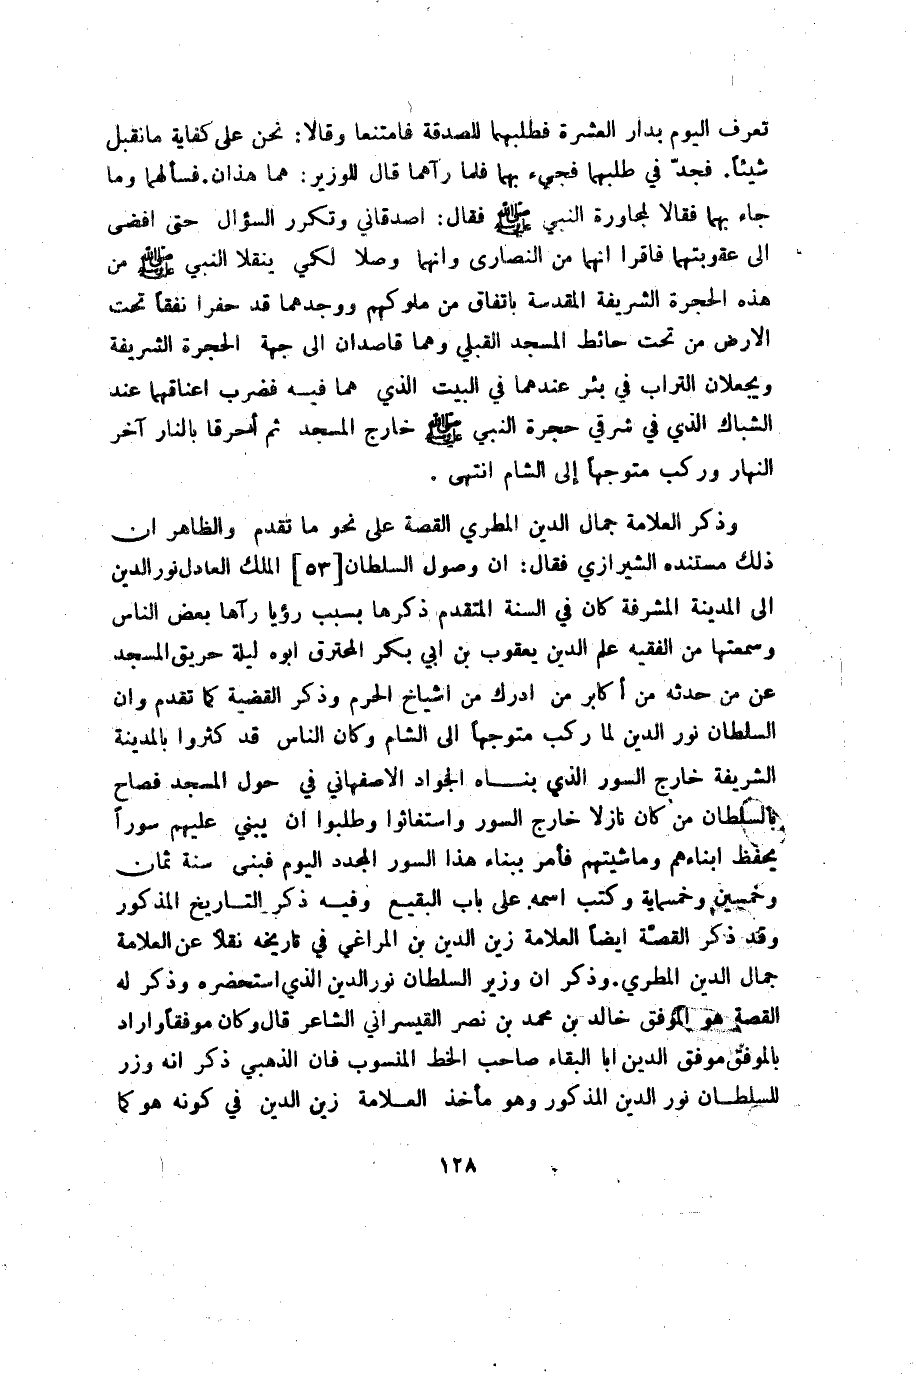 تعرف اليوم بدار العشرة فطلبهما للصدقة فامتنعا وقالا: نحن على كفاية مانقبل
شيئاً. فجدّ في طلبهما فجيء بهما فلما رآهما قال للوزير: هما هذان.فسألهما وما
جاء بهما فقالا لمجاورة النبي ﷺ فقال: اصدقاني وتكرر السؤال حتى افضى
الى عقوبتهما فاقرا انهما من النصارى وانهما وصلا لكي ينقلا النبي ﷺ من
هذه الحجرة الشريفة المقدسة باتفاق من ملوكهم ووجدهما قد حفرا نفقاً تحت
الارض من تحت حائط المسجد القبلي وهما قاصدان الى جهة الحجرة الشريفة
ويجعلان التراب في بئر عندهما في البيت الذي هما فيه فضرب اعناقهما عند
الشباك الذي في شرقي حجرة النبي ﷺ خارج المسجد ثم أحرقا بالنار آخر
النهار وركب متوجهاً إلى الشام انتهى .
وذكر العلامة جمال الدين المطري القصة على نحو ما تقدم والظاهر ان
ذلك مستنده الشيرازي فقال: ان وصول السلطان[٥٣] الملك العادل نور الدين
الى المدينة المشرفة كان في السنة المتقدم ذكرها بسبب رؤيا رآها بعض الناس
وسمعتها من الفقيه علم الدين يعقوب بن ابي بكر المحترق ابوه ليلة حريق المسجد
عن من حدثه من أكابر من ادرك من اشياخ الحرم وذكر القضية كما تقدم وان
السلطان نور الدين لما ركب متوجهاً الى الشام وكان الناس قد كثروا بالمدينة
الشريفة خارج السور الذي بناه الجواد الاصفهاني في حول المسجد فصاح
بالسلطان من كان نازلا خارج السور واستغاثوا وطلبوا ان يبني عليهم سوراً
يحفظ ابناءهم وماشيتهم فأمر ببناء هذا السور المجدد اليوم فبنى سنة ثمان
وخمسين وخمسماية وكتب اسمه على باب البقيع وفيه ذكر التاريخ المذكور
وقد ذكر القصّة ايضاً العلامة زين الدين بن المراغي في تاريخه نقلاً عن العلامة
جمال الدين المطري.وذكر ان وزير السلطان نور الدين الذي استحضره وذكر له
القصة هو الموفق خالد بن محمد بن نصر القيسراني الشاعر قال وكان موفقاً واراد
بالموفّق موفق الدين ابا البقاء صاحب الخط المنسوب فان الذهبي ذكر انه وزر
للسلطان نور الدين المذكور وهو مأخذ العلامة زين الدين في كونه هو كما
١٢٨